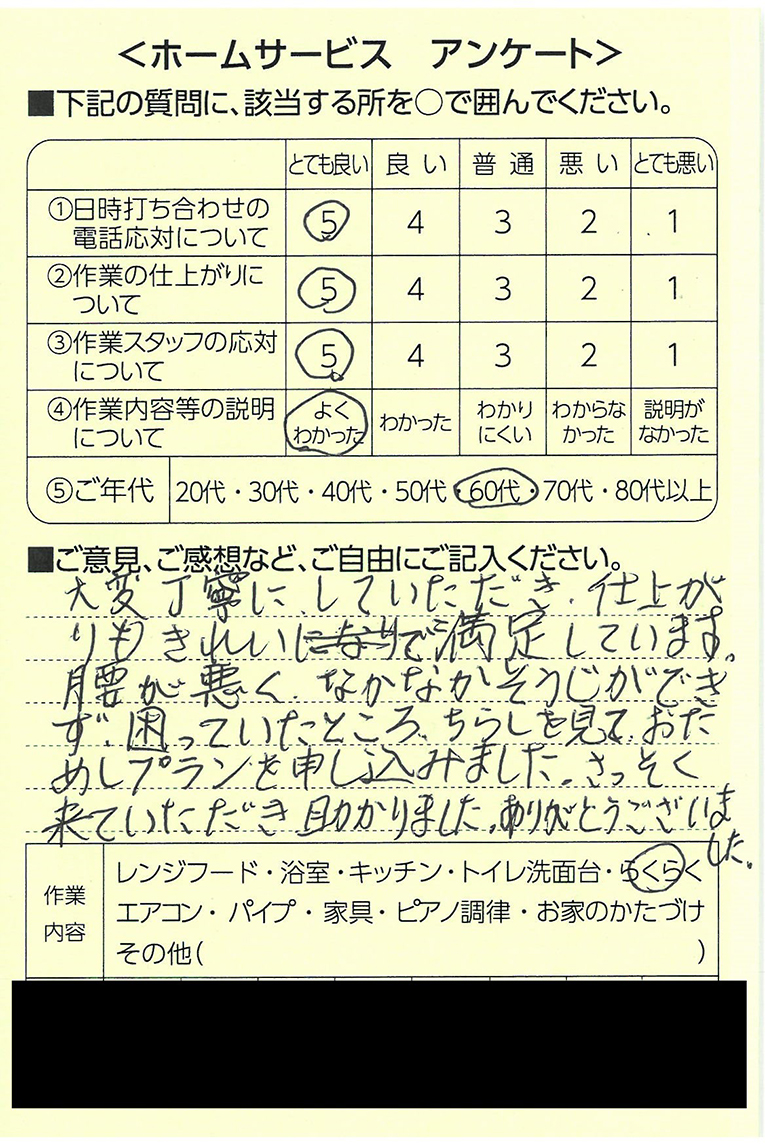 ＜ホームサービス アンケート＞
■下記の質問に、該当する所を○で囲んでください。
とても良い 良い 普通 悪い とても悪い
①日時打ち合わせの電話応対について 5 4 3 2 1
②作業の仕上がりについて 5 4 3 2 1
③作業スタッフの応対について 5 4 3 2 1
④作業内容等の説明について よくわかった わかった わかりにくい わからなかった 説明がなかった
⑤ご年代 20代・30代・40代・50代・60代・70代・80代以上
■ご意見、ご感想など、ご自由にご記入ください。
大変丁寧に、していただき、仕上が
りもきれいで満足しています。
腰が悪く、なかなかそうじができ
ず、困っていたところ、ちらしを見て、おた
めしプランを申し込みました。さっそく
来ていただき助かりました。ありがとうございま
した。
作業内容
レンジフード・浴室・キッチン・トイレ洗面台・らくらく
エアコン・パイプ・家具・ピアノ調律・お家のかたづけ
その他( )